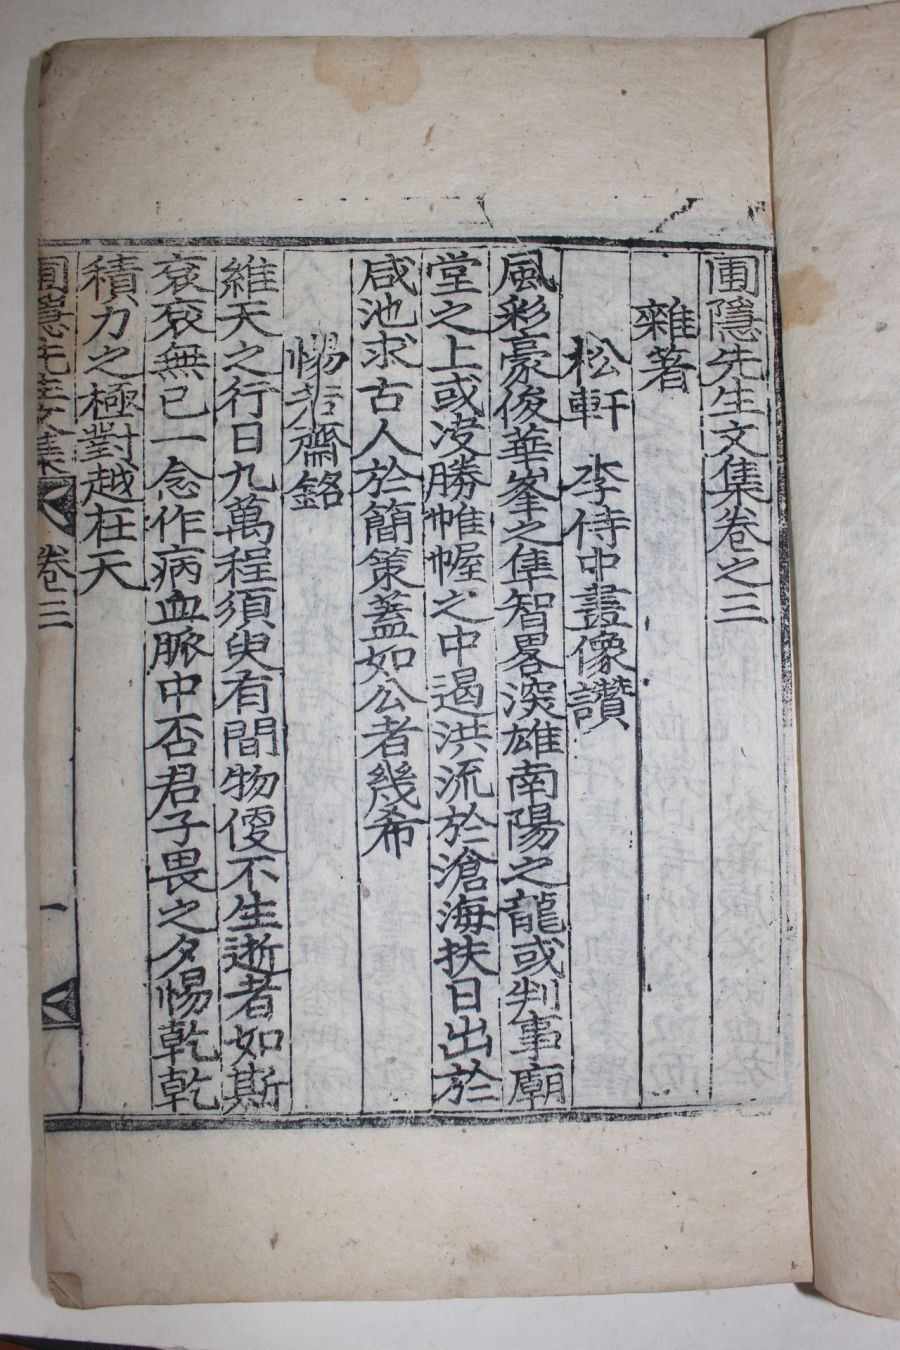 圃隱先生文集卷之三
雜著
松軒 李侍中畫像讃
風彩豪俊華峯之隼智畧深雄南陽之龍或判事廟
堂之上或决勝帷幄之中遏洪流於滄海扶日出於
咸池求古人於簡策蓋如公者幾希
惕若齋銘
維天之行日九萬程須臾有間物便不生逝者如斯
袞袞無已一念作病血脈中否君子畏之夕惕乾乾
積力之極對越在天
圃隱先生集 卷三 一